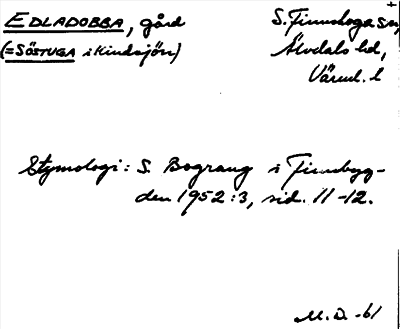 EDLADOBBA, gård
S. Finnskoga sn,
(=SÖSTUGA i Kindsjön)
Älvdals hd,
Värml. l
Etymologi: S. Bograng i Finnbyg-
den 1952:3, sid. 11-12.
M.D. -61